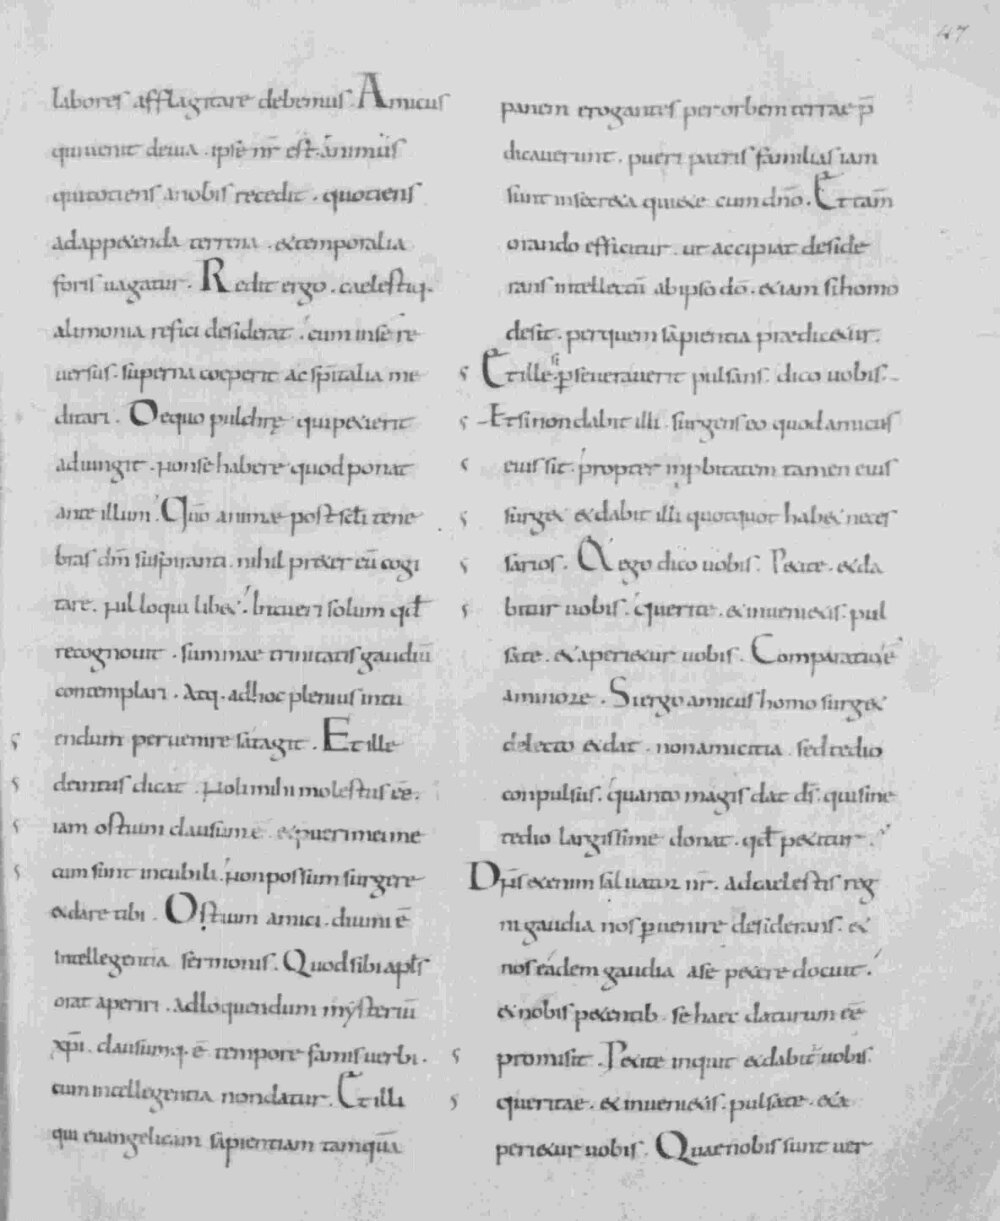 47
labores afflagitare debemus. Amicus
qui uenit de uia. ipse nr̄ est animus
qui totiens a nobis recedit. quotiens
ad appetenda terrena. et temporalia
foris uagatur. Redit ergo. caelestiq.
alimonia refici desiderat. cum in se re
uersus. superna coeperit ac sp̄italia me
ditari. De quo pulchrę qui petierit
adiungit. Non se habere quod ponat
ante illum. Quō animae post sc̄li tene
bras dm̄ suspiranti. nihil preter eū cogi
tare. Nil loqui libet. Intueri solum qd̄
recognouit. summae trinitatis gaudiū
contemplari. Atq. ad hoc plenius intu
endum peruenire satagit. Et ille
deintus dicat. Noli mihi molestus eē.
iam ostium clausum ē. et pueri mei me
cum sunt in cubili. Non possum surgere
et dare tibi. Ostium amici. diuini ē
intellegentia sermonis. Quod sibi apl̄s
orat aperiri. Ad loquendum mysteriū
xp̄i. clausumq. ē tempore famis uerbi.
cum intellegentia non datur. Et illi
qui euangelicam sapientiam tamquā
panem erogantes per orbem terrae p̄
dicauerunt. pueri patris familias iam
sunt in secreta quiete cum dn̄o. Et tam̄
orando efficitur. ut accipiat deside
rans intellectū ab ipso dō. etiam si homo
desit. per quem sapientia praedicetur.
Et ille si perseuerauerit pulsans. dico uobis.
Et si non dabit illi surgens eo quod amicus
eius sit. propter inprobitatem tamen eius
surget et dabit illi quotquot habet neces
sarios. Et ego dico uobis. Petite. et da
bitur uobis. querite. et inuenietis. pul
sate. et aperietur uobis. Comparatio ē
a minore. Si ergo amicus homo surget
de lecto et dat. non amicitia sed tedio
conpulsus. quanto magis dat dś. qui sine
tedio largissime donat. qd̄ petitur.
Dn̄s etenim saluator nr̄. ad caelestis reg
ni gaudia nos peruenire desiderans. et
nos eadem gaudia a se petere docuit.
et nobis petentib. se haec daturum eē
promisit. Petite inquit et dabitur uobis.
queritae. et inuenietis. pulsate. et a
perietur uobis. Quae nobis sunt uer